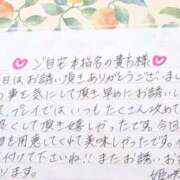 ♡ご自宅本指名の貴方様♡
日はお誘い頂きありがとうございまし
の事を気にして頂き早めにお誘いし
プレイではいつもたくさん攻めて
良くして頂き嬉しかったです。今回
を用意してくれて美味しかったです。
付けて下さいね!!またお誘いお
ります。 姫咲